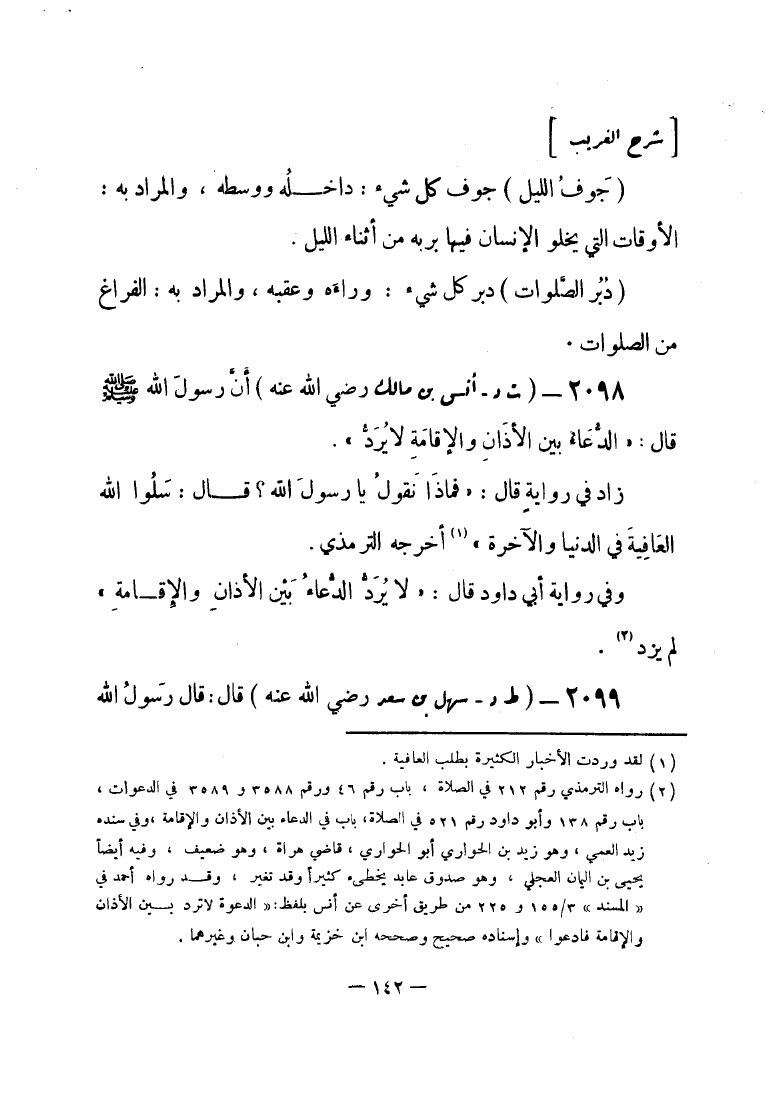 [ شرح الغريب ]
( جَوفُ الليل ) جوف كل شيء : داخـــلُه ووسطه ، والمراد به :
الأوقات التي يخلو الإنسان فيها بربه من أثناء الليل .
( دُبُر الصَّلوات ) دبر كل شيء : وراءه وعقبه ، والمراد به : الفراغ
من الصلوات .
٢٠٩٨ — ( ت د - أنس بن مالك رضي الله عنه ) أنَّ رسولَ الله ﷺ
قال : « الدُّعَاءُ بين الأذَانِ والإقامَةِ لا يُرَدُّ » .
زاد في روايةٍ قال : « فماذَا نَقولُ يا رسولَ الله ؟ قـــال : سَلُوا الله
العَافِيةَ في الدنيا والآخرة »(١) أخرجه الترمذي .
وفي رواية أبي داود قال : « لا يُرَدُّ الدُّعاءُ بَيْنَ الأذانِ والإقـــامةِ »
لم يزد(٢) .
٢٠٩٩ — ( ط د - سهل بن سعد رضي الله عنه ) قال : قال رَسولُ الله
(١) لقد وردت الأخبار الكثيرة بطلب العافية .
(٢) رواه الترمذي رقم ٢١٢ في الصلاة ، باب رقم ٤٦ ورقم ٣٥٨٨ و ٣٥٨٩ في الدعوات ،
باب رقم ١٣٨ وأبو داود رقم ٥٢١ في الصلاة ، باب في الدعاء بين الأذان والإقامة ، وفي سنده
زيد العمي ، وهو زيد بن الحواري أبو الحواري ، قاضي هراة ، وهو ضعيف ، وفيه أيضاً
يحيى بن اليمان العجلي ، وهو صدوق عابد يخطىء كثيراً وقد تغير ، وقـــد رواه أحمد في
« المسند » ١٥٥/٣ و ٢٢٥ من طريق أخرى عن أنس بلفظ : « الدعوة لا ترد بـــين الأذان
والإقامة فادعوا » وإسناده صحيح وصححه ابن خزيمة وابن حبان وغيرهما .
— ١٤٢ —